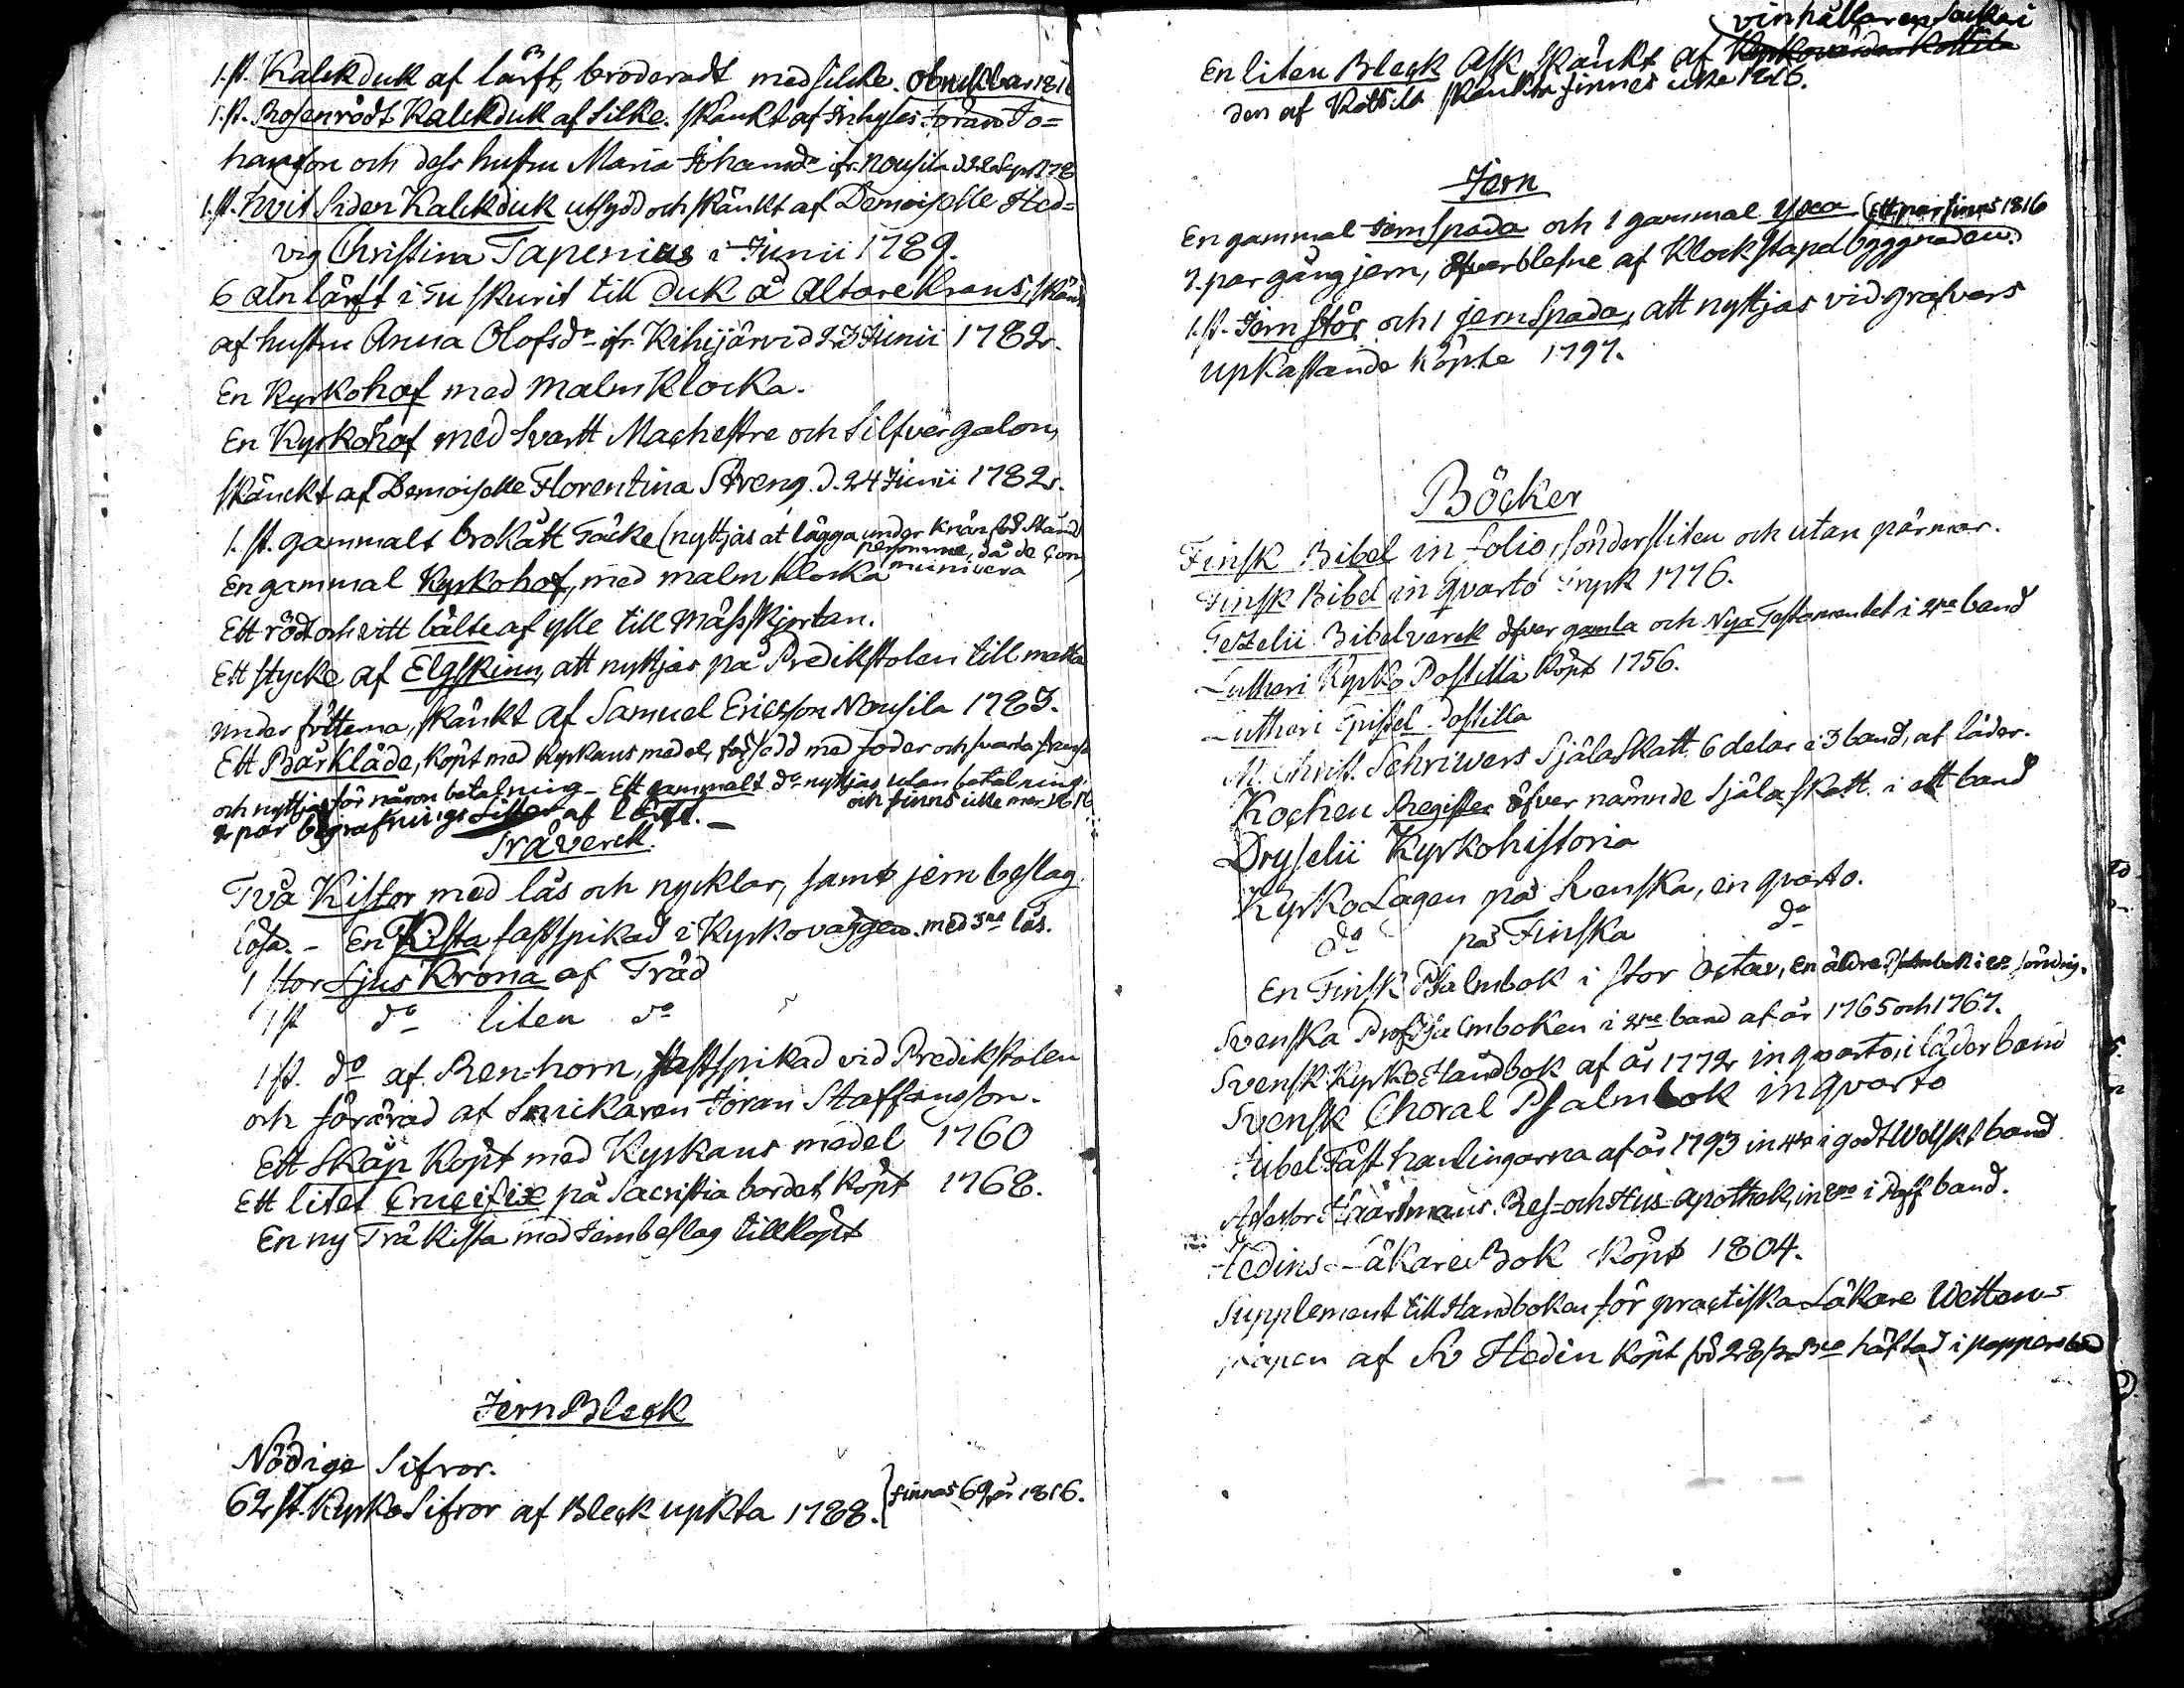 1. st. Kalckduk af lärft, broderadt med silcke. obrukbar 1816
1. st. Rosenrödt Kalckduk af Silke. skänkt af Inhyses Jöran Jo=
hansson och dess hustru Maria Johansdr ifr. Nousila d. 22 Sept. 178
1. st. hvit Siden Kalckduk utsydd och skänkt af Demoiselle Hed=
vig Christina Tapenius i Junii 1789.
6 aln lärft i tu skurit till duk å Altare Krans, skänk
af hustru Anna Olofsdr ifr. Kihijärvi d. 23 Junii 1782.
En Kyrkohof med malm Klocka.
En Kyrkohof med Svart Machestre och Silfver galon,
skänckt af Demoiselle Florentina Streng. d. 24 Junii 1782.
1. st. gammalt brokått Täcke (nyttjas at lägga under Knän för Stånds
personerne, då de Com
En gammal Kyrkohof, med malm Klocka municera
Ett rödt och vitt bälte af ylle till Mässkjortan.
Ett stycke af Elgskinn, att nyttjas på Predikstolen till matta
under fötterna, skänkt af Samuel Ericsson Nousila 1783.
Ett Bårkläde, köpt med Kyrkans medel, försedd med foder och svarta fransa
och nyttjas för någon betalning - Ett gammalt do nyttjas utan betalning
och finns icke mer 1816
2 par begrafnings af lärft. -
Träverck.
Två Kistor med lås och nycklar, samt jern beslag.
lösa. - En Kista fastspikad i Kyrkoväggen. med 3ne lås.
1 stor Ljus Krona af Träd
1 st do liten do
1 st. do af. Ren-horn, fastspikad vid Predikstolen
och förärad af Snickaren Jöran Staffansson.
Ett Skåp Köpt med Kyrkans medel 1760
Ett litet Crucifix på Sacristia bordet, Köpt 1768.
En ny Trä Kista med Jernbeslag tillköpt
Jern Bleck
Nödige Sifror.
62 st. Kyrko Sifror af Bleck upkta 1788. finnas 69 år 1816.
vinhållaren Sackari
En liten Bleck Ask skänkt af Kyrkovärden Kottila
den af Kottila skänkta finnes icke 1816.
Jern
En gammal Jernspada och 1 gammal yxa (Ett par finns 1816
2. par gångjern, öfverblefne af Klockstapelbyggnaden.
1. st. Jern stör och 1 jernspada, att nyttjas vid grafvars
upkastande köpte 1797.
Böcker
Finsk Bibel in folio, sönderslite och utan pärmar.
Finsk Bibel in qvarto tryck 1776.
Gezelii Bibelverck öfver gamla och Nya Testamentet i 2ne band
Lutheri Kyrko Postilla Köpt 1756.
Lutheri Epistel Postilla
M. Christ. Schriwers Själaskatt 6 delar i 3 band, af läder.
Kochen Register öfver nämnde Själaskatt. i ett band
Dryselii Kyrkohistoria
Kyrko Lagen på Svenska, en qvarto.
do på Finska do
En Finsk Psalmbok i stor Octav, en äldre Psalmbok i söndrig.
Svenska Prof Psalmboken i 2ne band af år 1765 och 1767.
Svensk Kyrko Handbok af år 1772 in qvarto, i läder band
Svensk Choral Psalmbok in qvarto
Jubel Fäst handlingarna af år 1793 in 4to i godt Wälskt band
Assessor Haartmans. Res- och Hus-apothek, in 8vo i Papp band.
Hedins Läkare Bok köpt 1804.
Supplement till Handboken för practiska Läkare Wetten-
skapen af Sv Hedin köpt häftad i pappersbd